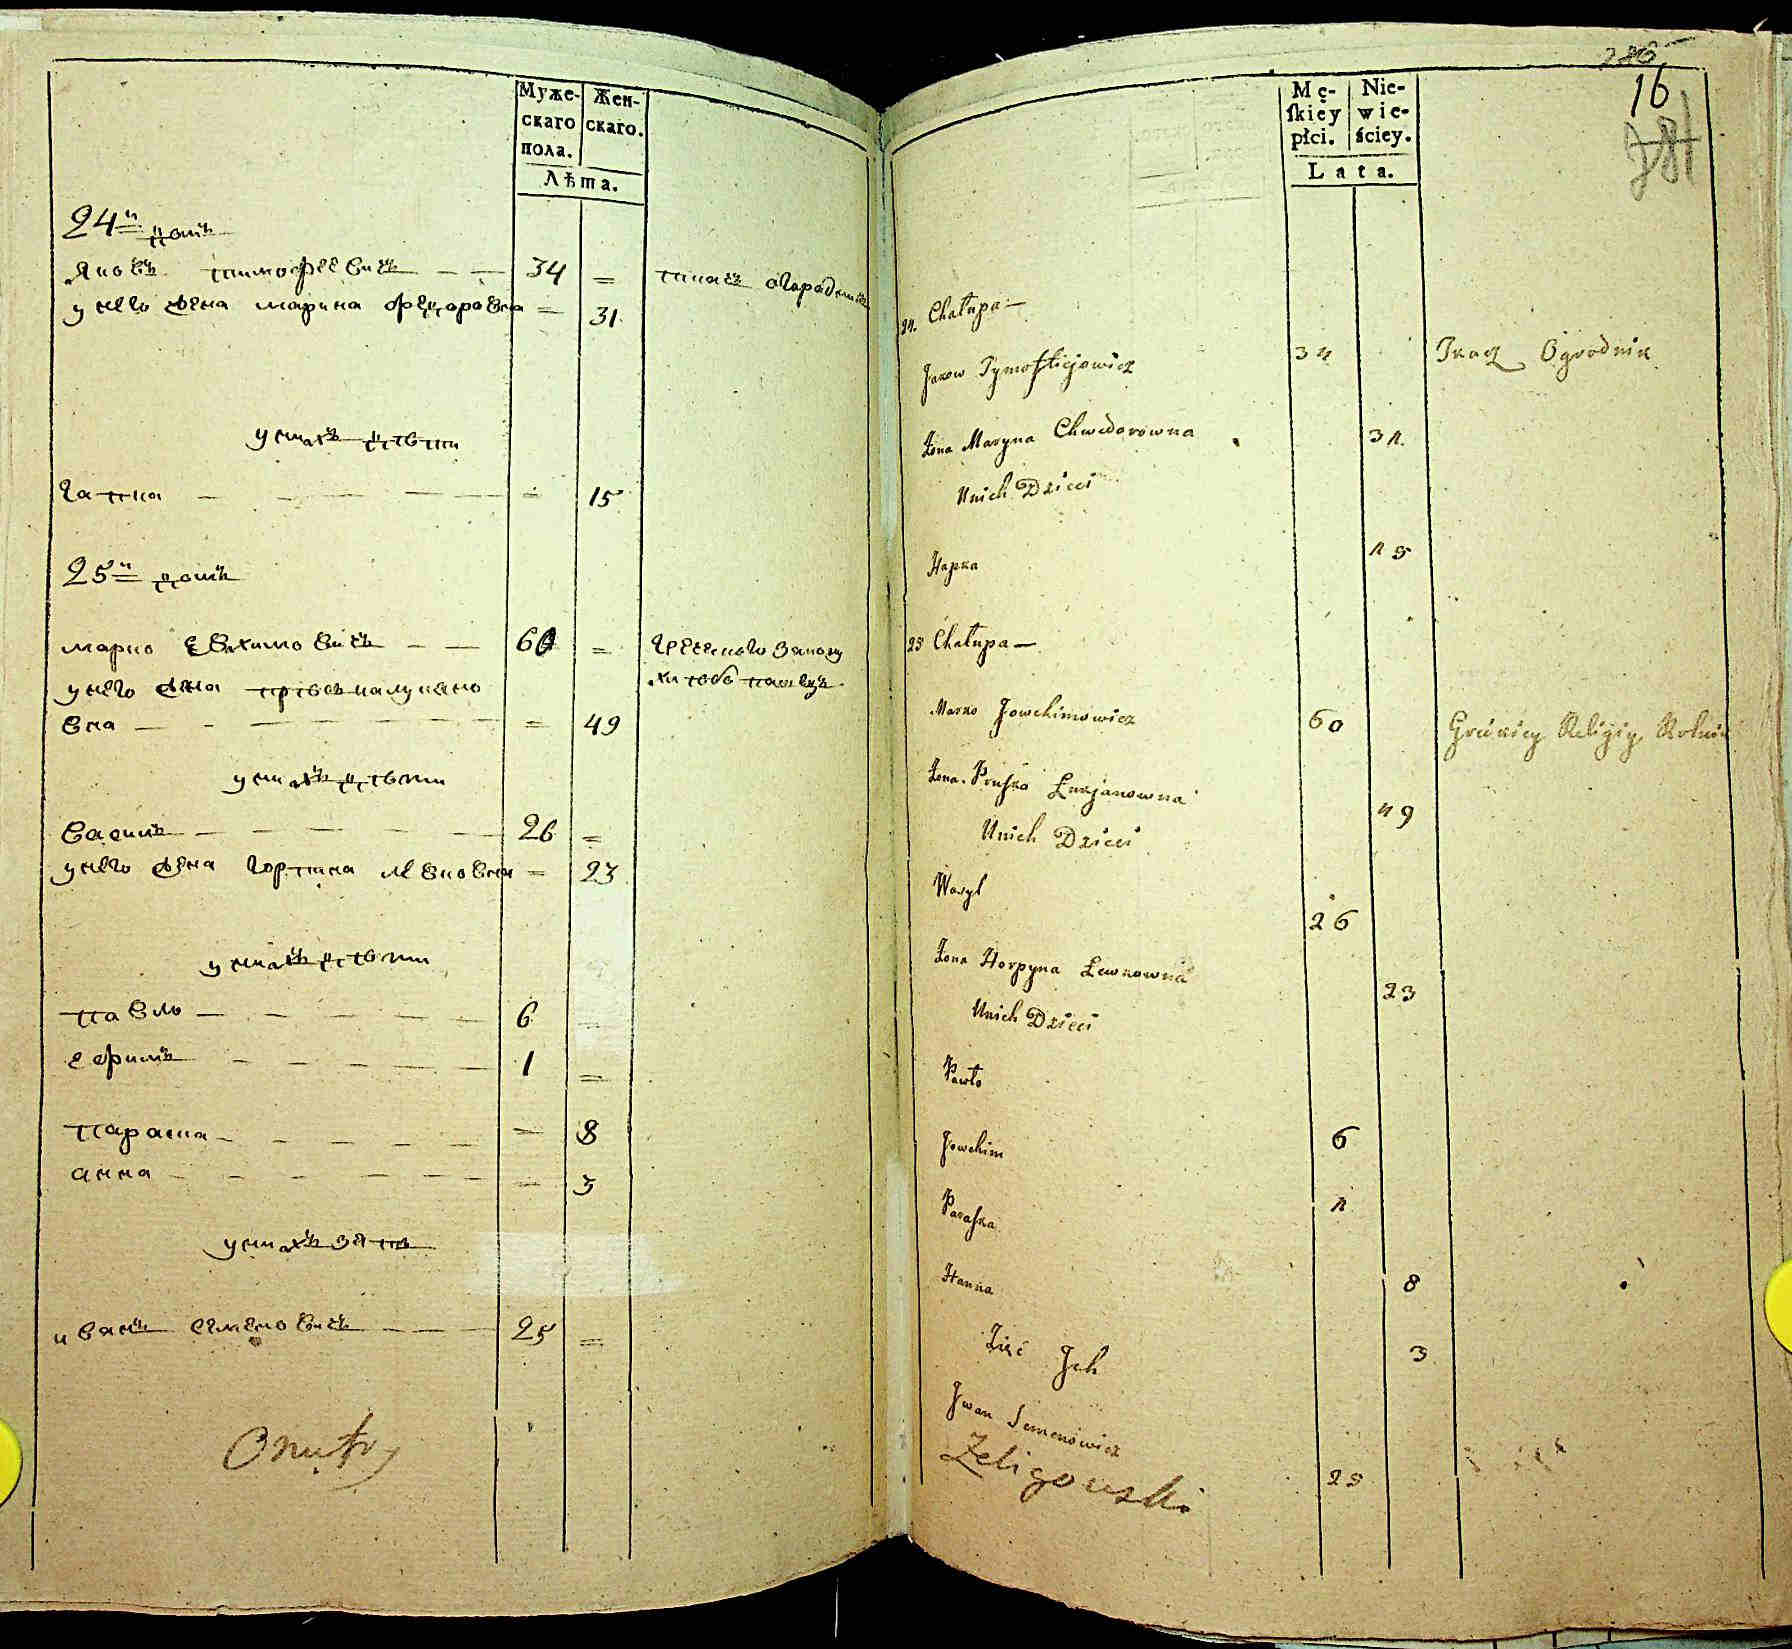 Муже-
скаго
пола.
Жен-
скаго.
Лѣта.
24й домъ
Яковъ тимофеевичъ 34 ткачъ огородникъ
у него жена марина федаровна 31
у нихъ дѣти
гапка 15
25й домъ
марко евхимовичъ 60 греческого закону
хлѣбопашецъ
у него жена прѣська лукяно
вна 49
у нихъ дѣти
василь 26
у него жена горпина левковна 23
у нихъ дѣти
павло 6
ефимъ 1
параска 8
анна 3
у нихъ зять
иванъ семеновичъ 25
16
Mę-
ſkiey
płci.
Nie-
wie-
ściey.
Lata.
24. Chałupa
Jakow Tymofticjowicz 34 Tkacz Ogrodnik
Żona Maryna Chwedorowna 31
Unich Dzieci
Hapka 15
25 Chałupa
Marko Jowchimowicz 60 Gréckiey Religiy Rolnik
Żona Pruſka Łukjanowna 49
Unich Dzieci
Wasyl 26
Żona Horpyna Lewkowna 23
Unich Dzieci
Pawło 6
Jowchim 1
Paraſka 8
Hanna 3
Zięć Jch
Jwan Semenowicz 25
Zeligowski